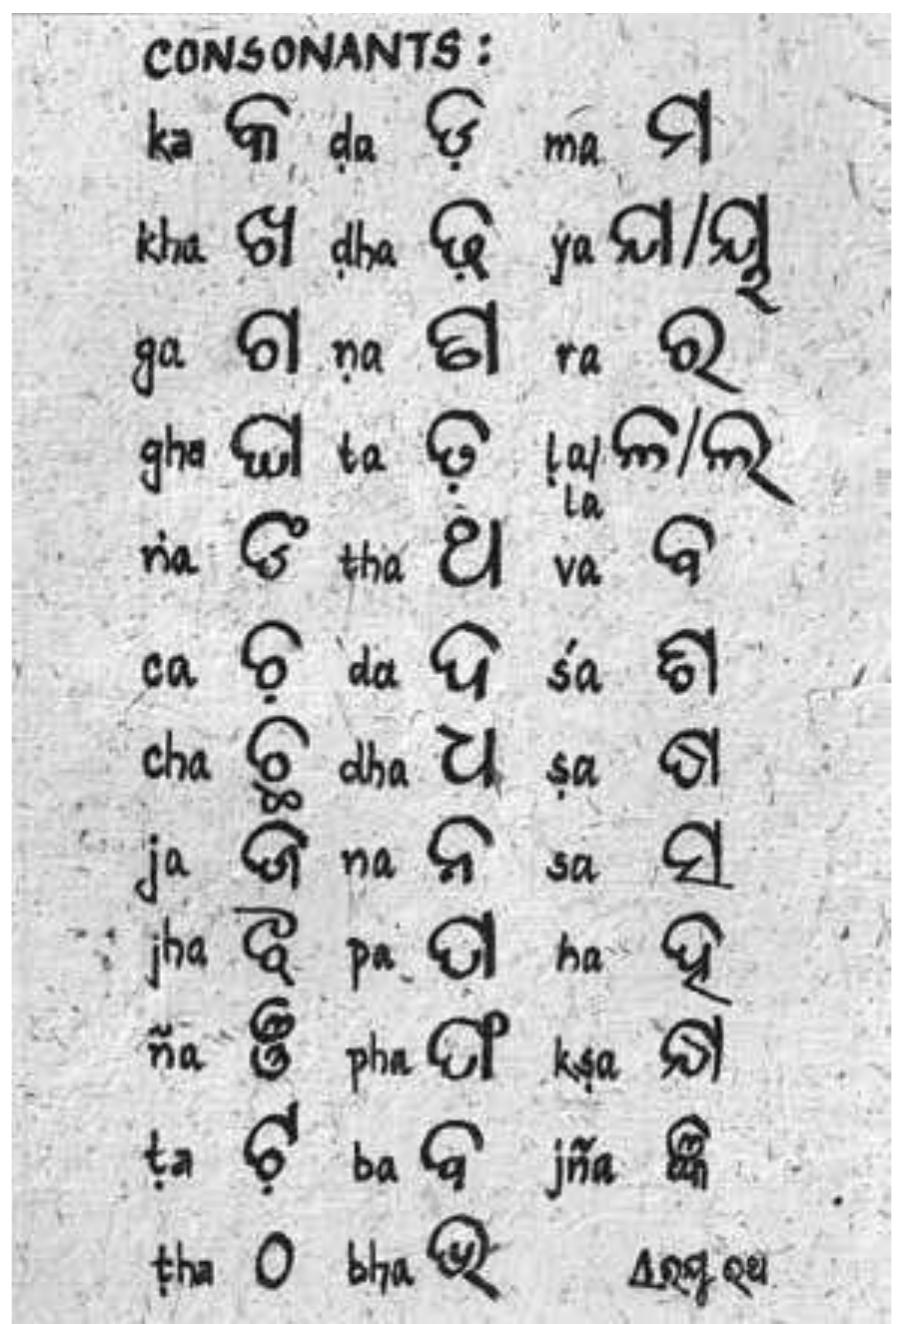 CONSONANTS:
ka କ ḍa ଡ଼ ma ମ
kha ଖ ḍha ଢ଼ ẏa ଯ/ୟ
ga ଗ ṇa ଣ ra ର
gha ଘ ta ତ ḷa/ ଳ/ଲ
la
ṅa ଙ tha ଥ va ବ
ca ଚ da ଦ śa ଶ
cha ଛ dha ଧ ṣa ଷ
ja ଜ na ନ sa ସ
jha ଝ pa ପ ha ହ
ña ଞ pha ଫ kṣa କ୍ଷ
ṭa ଟ ba ବ jña ଜ୍ଞ
ṭha ଠ bha ଭ